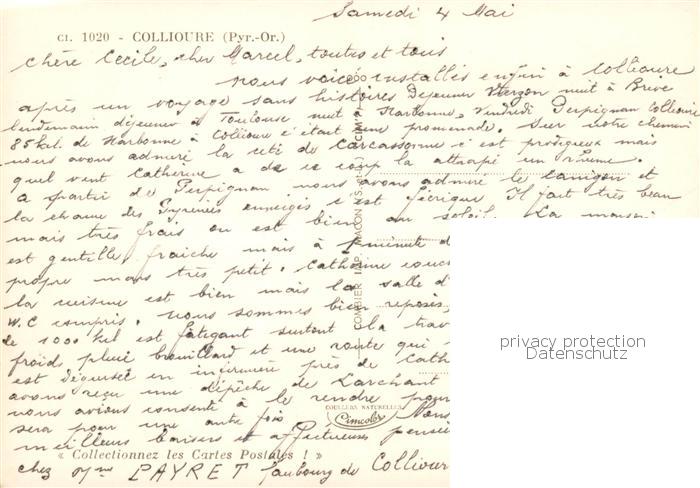 Samedi 4 Mai
CI. 1020 - COLLIOURE (Pyr.-Or.)
Chère Cécile, cher Marcel, toutes et tous
Nous voici installés enfin à Collioure
après un voyage sans histoires Déjeuner Vierzon nuit à Brive
lendemain déjeuner à Toulouse nuit à Narbonne, Vendredi Perpignan Collioure
85 kil. de Narbonne à Collioure c'était une promenade. Sur notre chemin
nous avons admiré la cité de Carcassonne c'est prodigieux mais
quel vent Catherine a de ce coup là attrapé un rhume.
A partir de Perpignan nous avons admiré le Canigou et
la chaine des Pyrénées enneigés c'est féérique Il fait très beau
mais très frais on est bien au soleil. La maison
est gentille fraiche mais à 1 minute d
propre mais très petit. Catherine couc
la cuisine est bien mais la salle d'
W.C compris. Nous sommes bien reposés,
de 1000 kil est fatigant surtout la trav
froid pluie brouillard et une route qui
est déguisé en infirmière près de Cath
avons reçu une dépêche de Larchant
nous avions consenti à le rendre pour
sera pour une autre fois Nous
meilleurs baisers et affectueuses pensée
chez Mme PAYRET faubourg de Colliour
« Collectionnez les Cartes Postales ! »
COULEURS NATURELLES
Cimcolor
COMBIER IMP. MACON (S.-et-L.) CIM
privacy protection
Datenschutz